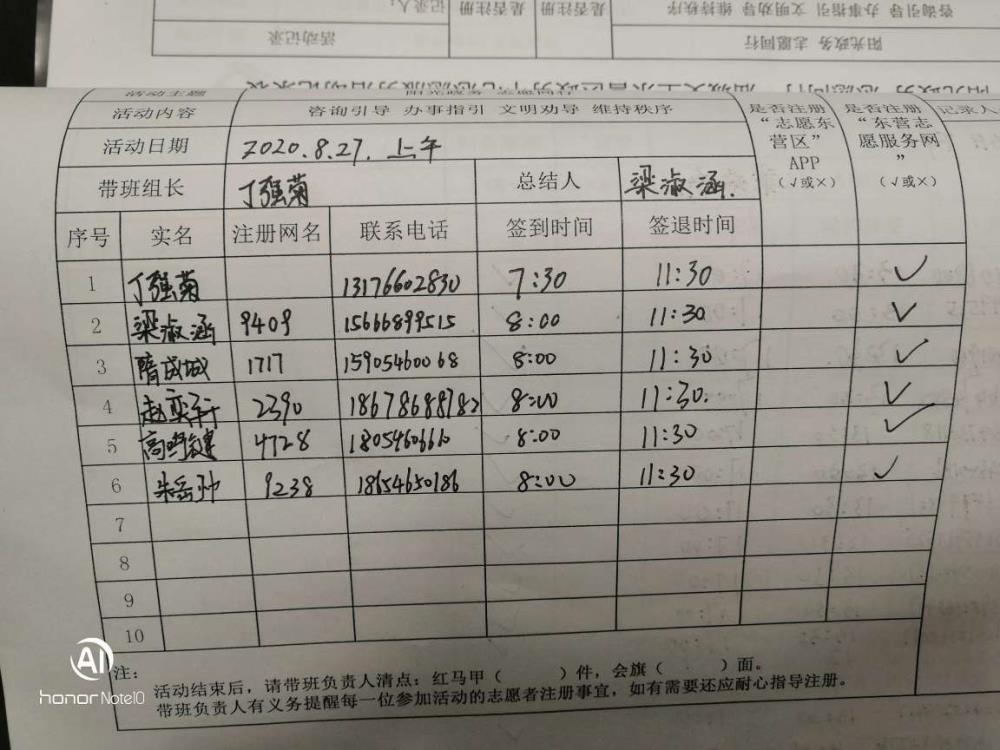 咨询引导 办事指引 文明劝导 维持秩序
是否注册 是否注册 记录人：
阳光政务 志愿同行
活动记录
活动主题
活动内容 咨询引导 办事指引 文明劝导 维持秩序 是否注册“志愿东营区”APP（√或×） 是否注册“东营志愿服务网”（√或×） 记录人
活动日期 2020.8.27. 上午
带班组长 丁强菊 总结人 梁淑涵.
序号 实名 注册网名 联系电话 签到时间 签退时间
1 丁强菊 13176602830 7:30 11:30 ✓
2 梁淑涵 9409 15666899515 8:00 11:30 ✓
3 隋成城 1717 15905460068 8:00 11:30 ✓
4 2390 8:00 11:30. ✓
5 4728 8:00 11:30 ✓
6 9238 18654650186 8:00 11:30 ✓
7
8
9
10
注：
活动结束后，请带班负责人清点：红马甲（ ）件，会旗（ ）面。
带班负责人有义务提醒每一位参加活动的志愿者注册事宜，如有需要还应耐心指导注册。
AI
honor Note10